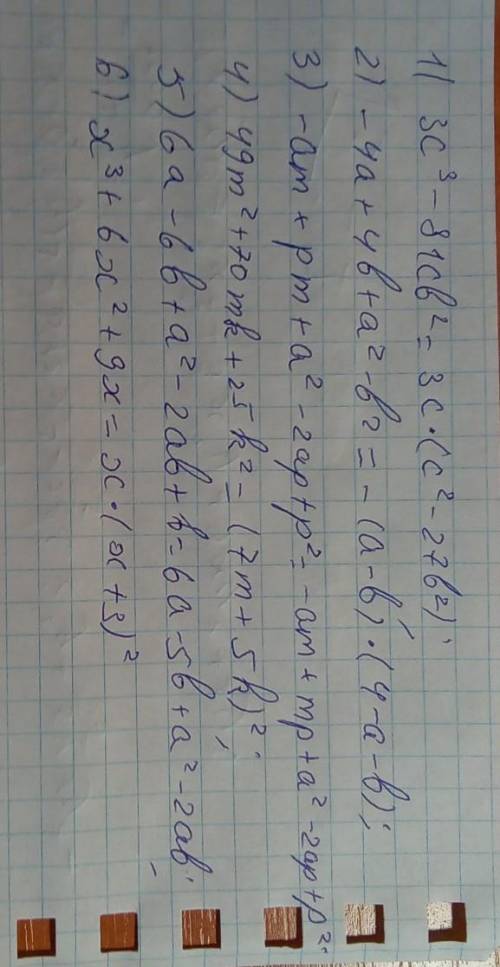 1) 3c³ - 81cb² = 3c·(c² - 27b²);
2) -4a + 4b + a² - b² = -(a - b)·(4 - a - b);
3) -am + pm + a² - 2ap + p² = -am + mp + a² - 2ap + p²;
4) 49m² + 70mk + 25k² = (7m + 5k)²;
5) 6a - 6b + a² - 2ab + b = 6a - 5b + a² - 2ab;
6) x³ + 6x² + 9x = x·(x + 3)²